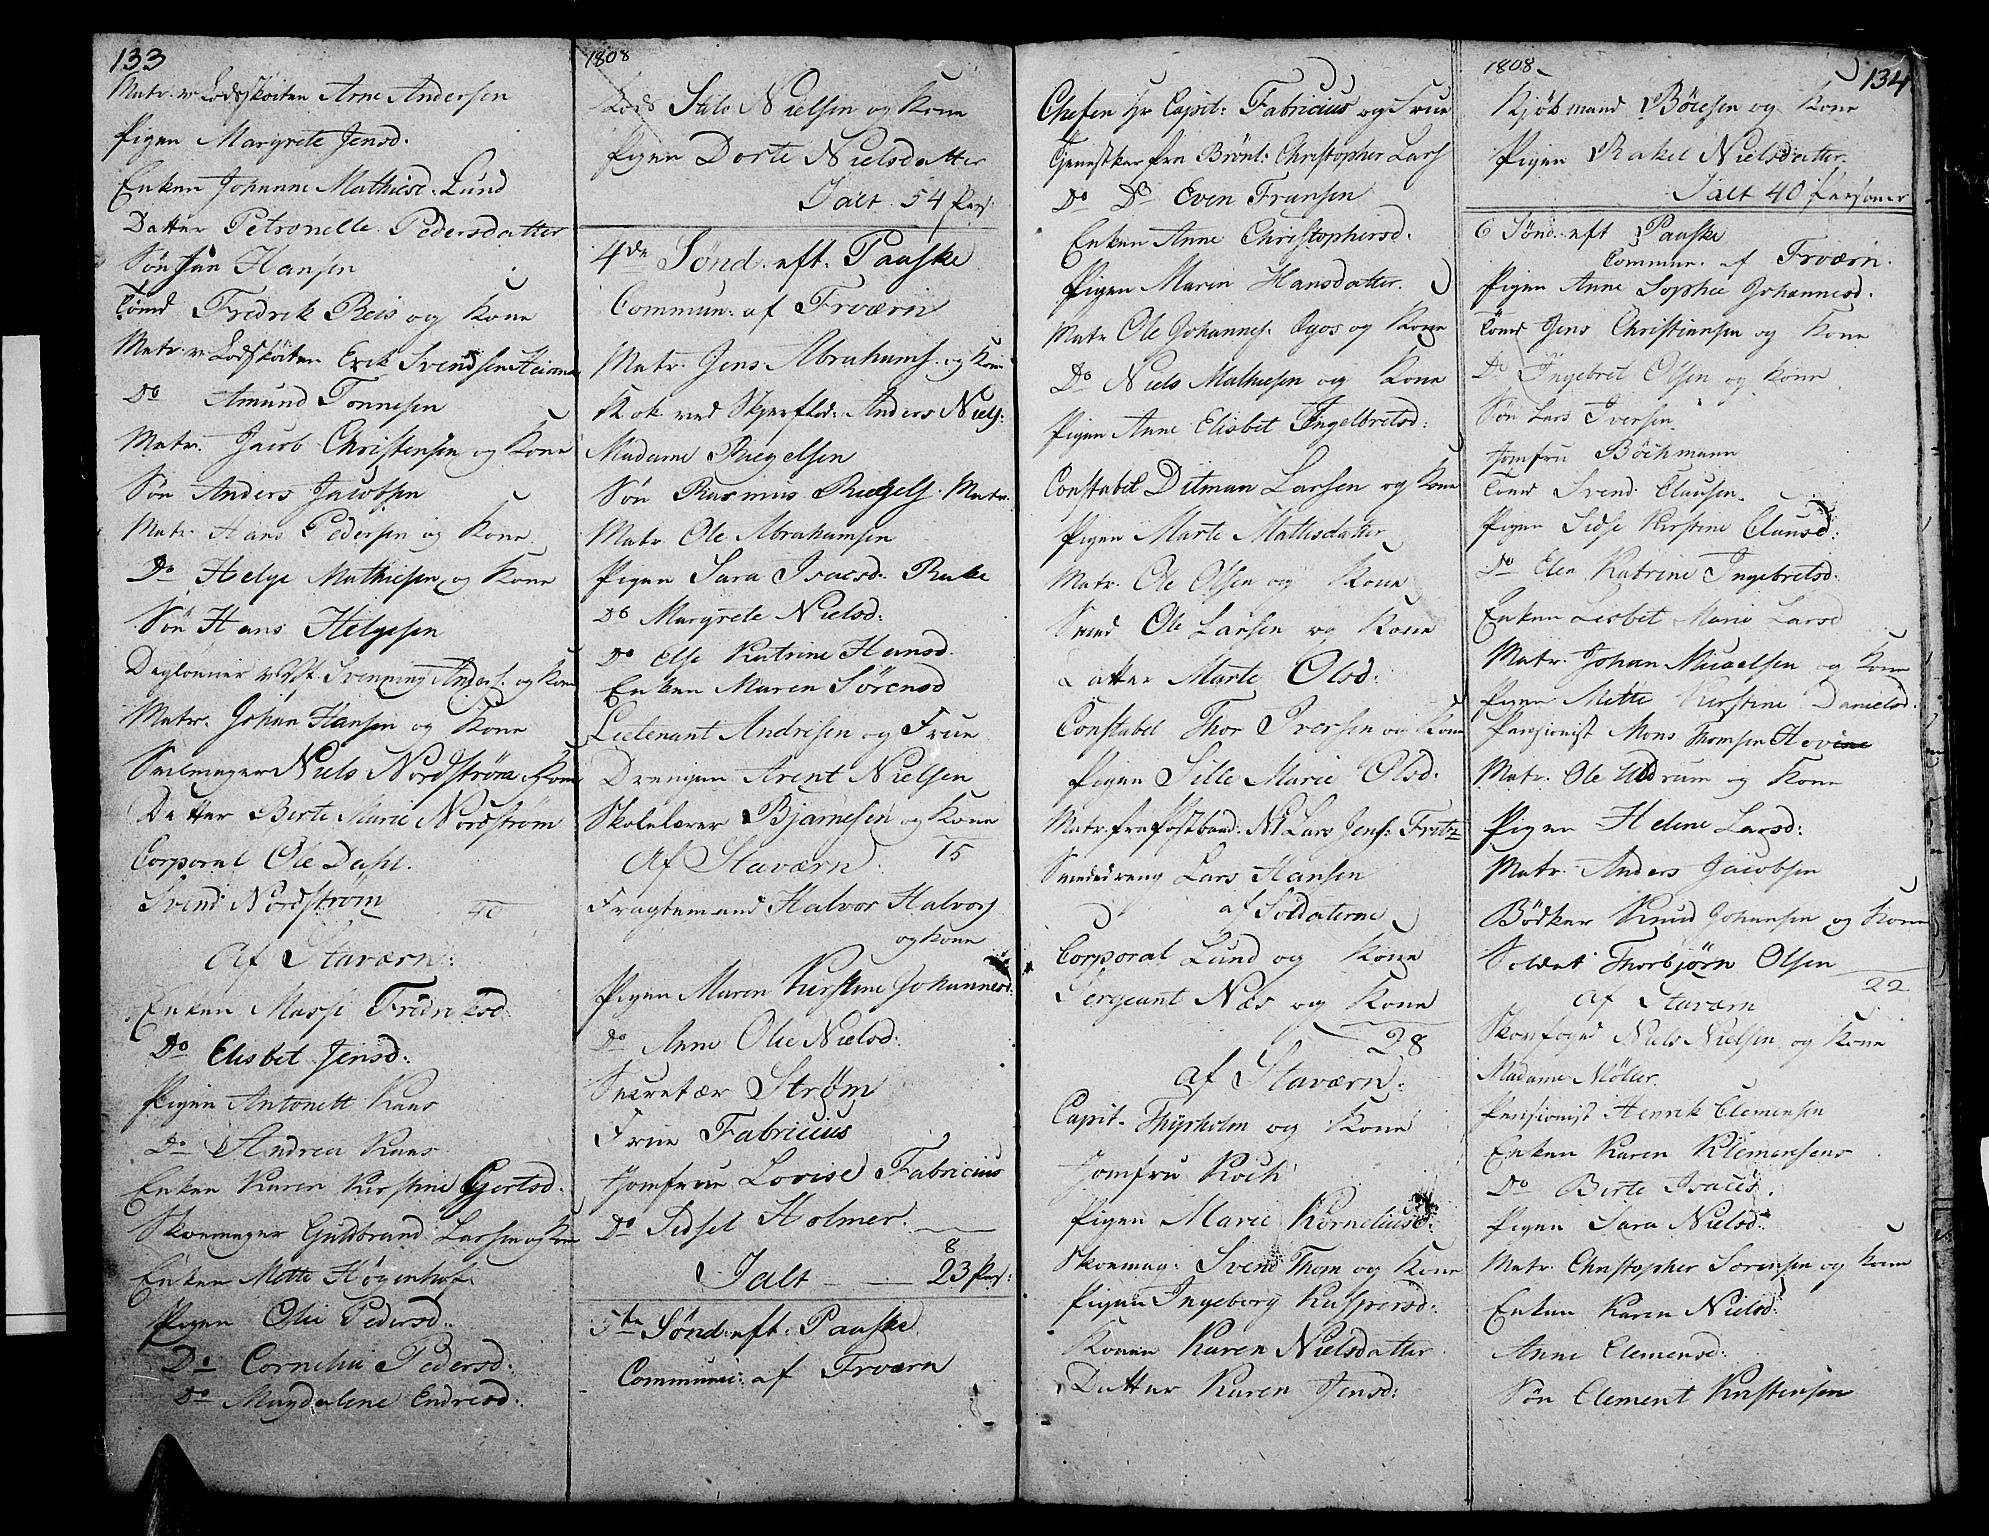 133
Matr. v. Lodsskøiten Arne Andersen
Pigen Margrete Jensd.
Enken Johanne Mathiesd. Lund
Datter Petronelle Pedersdatter
Søn Jan Hansen
Tømd Fredrik Reis og Kone
Matr. v. Lodskøiten Erik Svendsen
Do Amund Tonnesen
Matr. Jacob Christensen og Kone
Søn Anders Jacobsen
Matr. Hans Pedersen og Kone
Do Helge Mathiesen og Kone
Søn Hans Helgesen
Daglønner v. Svenning Anders. og Kone
Matr. Johan Hansen og Kone
Seilmager Niels Nordstrøm og Kone
Datter Berte Marie Nordstrøm
Corporal Ole Dahl.
Svend Nordstrøm 40
Af Staværn:
Enken Masse Fredriksd:
Do Elisbet Jensd:
Pigen Antonett Kaas
Do Andrea Kaas
Enken Karen Kirstine Gjertsd.
Skoemager Guldbrand Larsen og Kone
Enken Mette
Pigen Olie Pedersd.
Do Cornelia Pedersd:
Do Magdalene Endresd:
1808
Nielsen og Kone
Pigen Dorte Nielsdatter
Ialt 54 Pers:
4de Sønd. eft. Paaske
Commun: af Frværn
Matr. Jens Abrahams. og Kone
Kok ved Anders Niels:
Madame Riegelsen
Søn Rasmus Riegels. Matr.
Matr. Ole Abrahamsen
Pigen Sara Isacsd: Rake
Do Margrete Nielsd:
Do Else Katrine Hansd.
Enken Maren Sørensd
Lieutenant Andresen og Frue
Drengen Arent Nielsen
Skolelærer Bjørnesen og Kone
15
Af Staværn:
Fragtemand Halvor Halvors
og Kone
Pigen Maren Kirstine Johannesd:
Do Anne Olie Nielsd:
Secretær Strøm
Frue Fabricius
Jomfrue Lovise Fabricius
Do Sidsel Holmer.
8
Ialt 23 Pers:
5te Sønd: eft: Paaske
Communic: af Frværn
Chefen Hr Capit: Fabricius og Frue
fra Christopher Lars
Do Do Even Fransen
Enken Anne Christophersd.
Pigen Maren Hansdatter.
Matr Ole Johannes. og Kone
Do Niels Mathiesen og Kone
Pigen Anne Elisbet Ingelbretsd:
Constabel Ditman Larsen og Kone
Pigen Marte Mathisdatter
Matr. Ole Olsen og Kone
Smed Ole Larsen og Kone
Datter Marte Olsd:
Constabel Thor Iversen og Kone
Pigen Sille Marie Olsd:
Matr. fra Lars Jens:
Smededreng Lars Hansen
af Soldaterne
Corporal Lund og Kone
Sergeant Næs og Kone
28
Af Staværn:
Capit. Thyrholm og Kone
Jomfru Koch
Pigen Marie Korneliusd:
Skoemag: Svend Thom og Kone
Pigen Ingeborg Kaspersd:
Konen Karen Nielsdatter
Datter Karen Jensd:
1808
134
Kjøbmand og Kone
Pigen Rakel Nielsdatter.
Ialt 40 Personer
6 Sønd. eft Paaske
Commun. af Frværn.
Pigen Anne Sophie Johannesd.
Tømd Jens Christiansen og Kone
Do Ingebret Olsen og Kone
Søn Lars Iversen
Jomfru Böckmann
Tømd Svend Clausen
Pigen Sidse Kirstine Clausd:
Do Elen Katrine Ingebretsd.
Enken Lisbet Marie Larsd
Matr. Johan Micaelsen og Kone
Pigen Mette Kirstine Danielsd.
Pensionist Mons Thomsen
Matr. Ole og Kone
Pigen Helene Larsd:
Matr. Anders Jacobsen
Bødker Knud Johansen og Kone
Soldat Thorbjørn Olsen
22
Af Staværn
Skovfoged Niels Nielsen og Kone
Madame Møller.
Pensionist Henrik Clemensen
Enken Karen Klemensens
Do Berte Isacsd.
Pigen Sara Nielsd:
Matr. Christopher Sørensen og Kone
Enken Karen Nielsd:
Anne Clemensd:
Søn Clement Kristensen